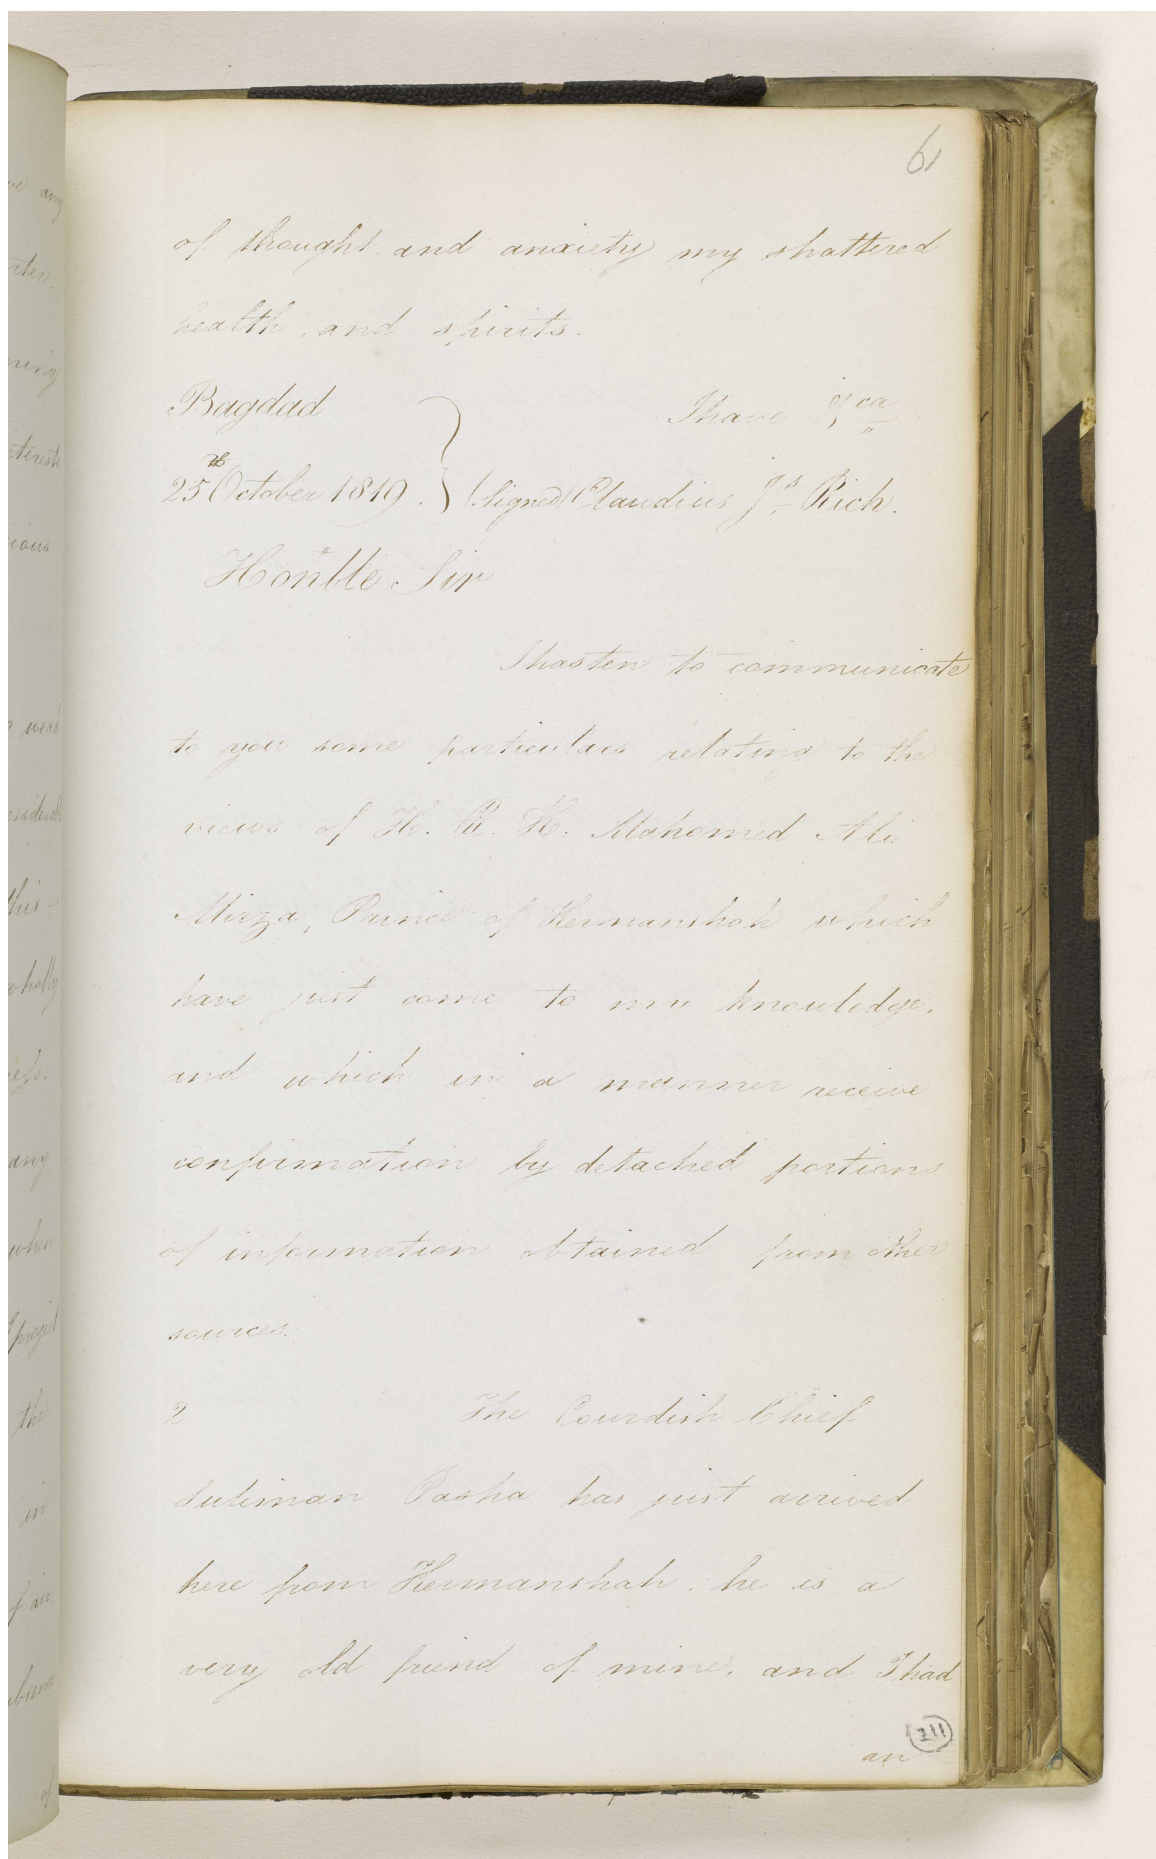 61
of thought and anxiety my shattered
health, and spirits.
Bagdad
I have &ca
25th October 1819. (Signed) Claudius Js. Rich.
Honble Sir
I hasten to communicate
to you some particulars relating to the
views of H. R. H. Mahomed Ali
Mirza, Prince of Kermanshah which
have just come to my knowledge,
and which in a manner receive
confirmation by detached portions
of information obtained from other
sources.
2 The Courdish Chief
Suliman Pasha has just arrived
here from Kermanshah. he is a
very old friend of mine, and I had
an
211